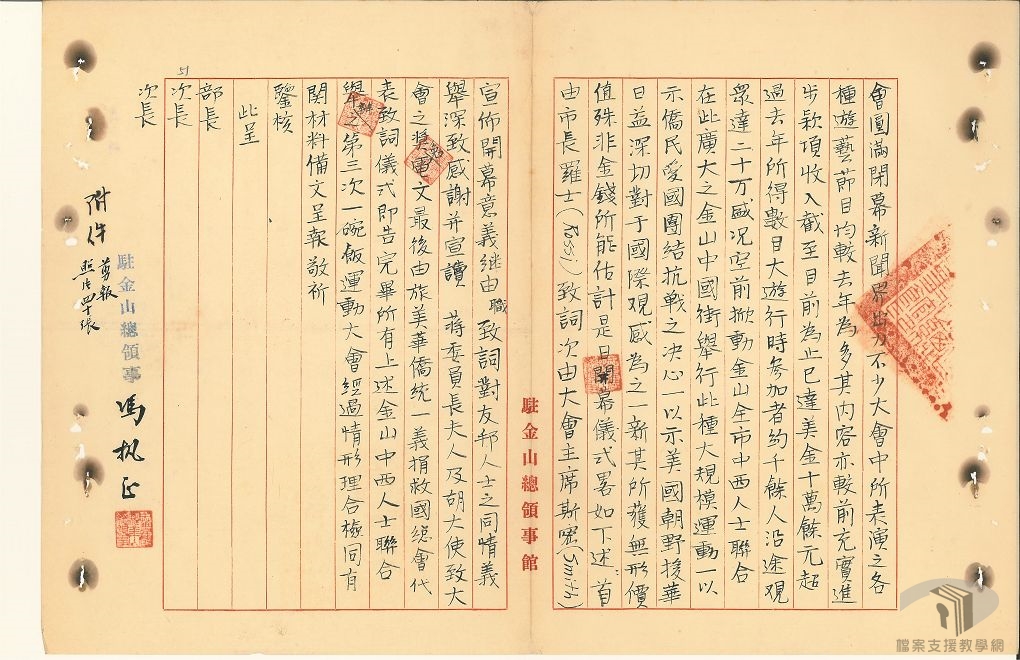 會圓滿閉幕新聞界出力不少大會中所表演之各
種遊藝節目均較去年為多其內容亦較前充實進
步款項收入截至目前為止已達美金十萬餘元超
過去年所得數目大遊行時參加者約千餘人沿途觀
衆達二十万盛况空前掀動金山全市中西人士聯合
在此廣大之金山中國街舉行此種大規模運動一以
示僑民愛國團結抗戰之决心一以示美國朝野援華
日益深切對于國際观感為之一新其所獲無形價
值殊非金錢所能估計是日開幕儀式畧如下述首
由市長羅士(Rossi)致詞次由大會主席斯密(Smith)
駐金山總領事館
宣佈開幕意義繼由職致詞對友邦人士之同情義
舉深致感謝并宣讀 蔣委員長夫人及胡大使致大
會之獎電文最後由旅美華僑統一義捐救國總會代
表致詞儀式即告完畢所有上述金山中西人士聯合
舉之第三次一碗飯運動大會經過情形理合檢同有
関材料備文呈報敬祈
鑒核
此呈
部長
次長
次長
51
附件 剪報
照片四十張
駐金山總領事 馮执正
檔案支援教學網